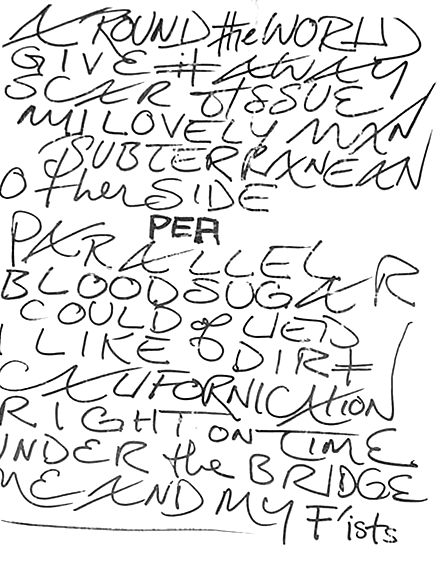 AROUND the WORLD
GIVE it AWAY
SCAR tISSUE
MY LOVELY MAN
SUBTERRANEAN
OtherSIDE
PEA
PARALLEL
BLOODSUGAR
COULD of LIED
I LIKE DIRt
CALIFORNICAtION
RIGHT ON TIME
UNDER the BRIDGE
ME AND MY F'ists